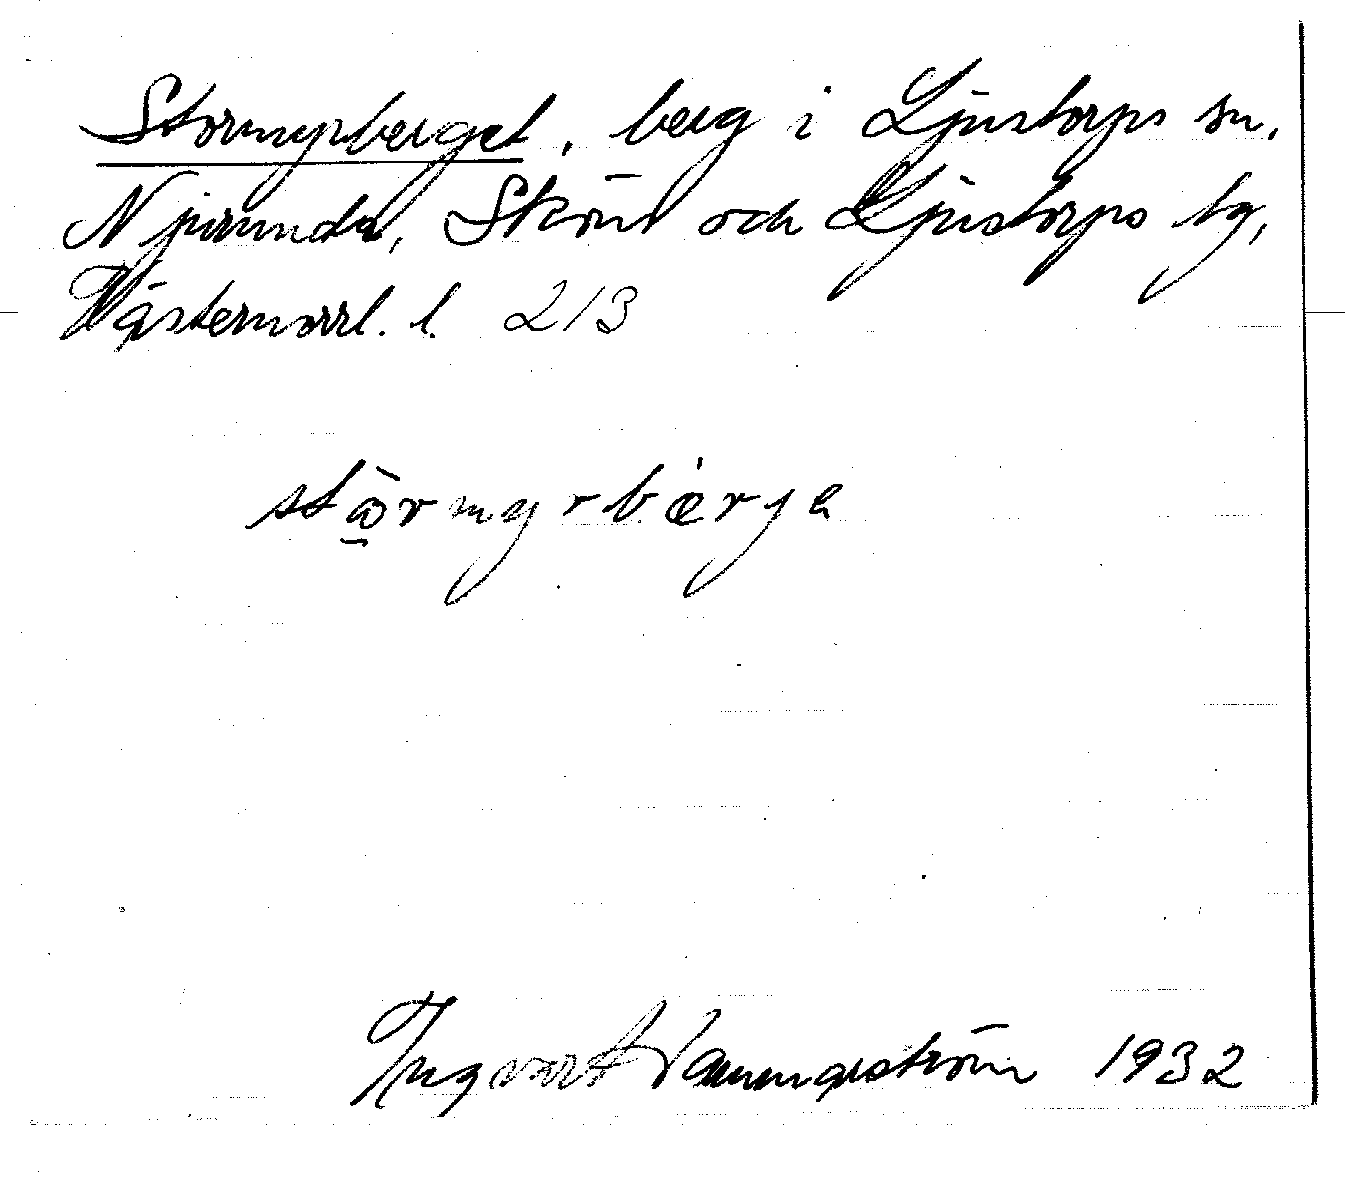 Stormyrberget, berg i Ljustorps sn,
Njurunda, Sköns och Ljustorps tg,
Västernorrl. l. 213
stǫ̀rmyrbærje
Ingvart 1932